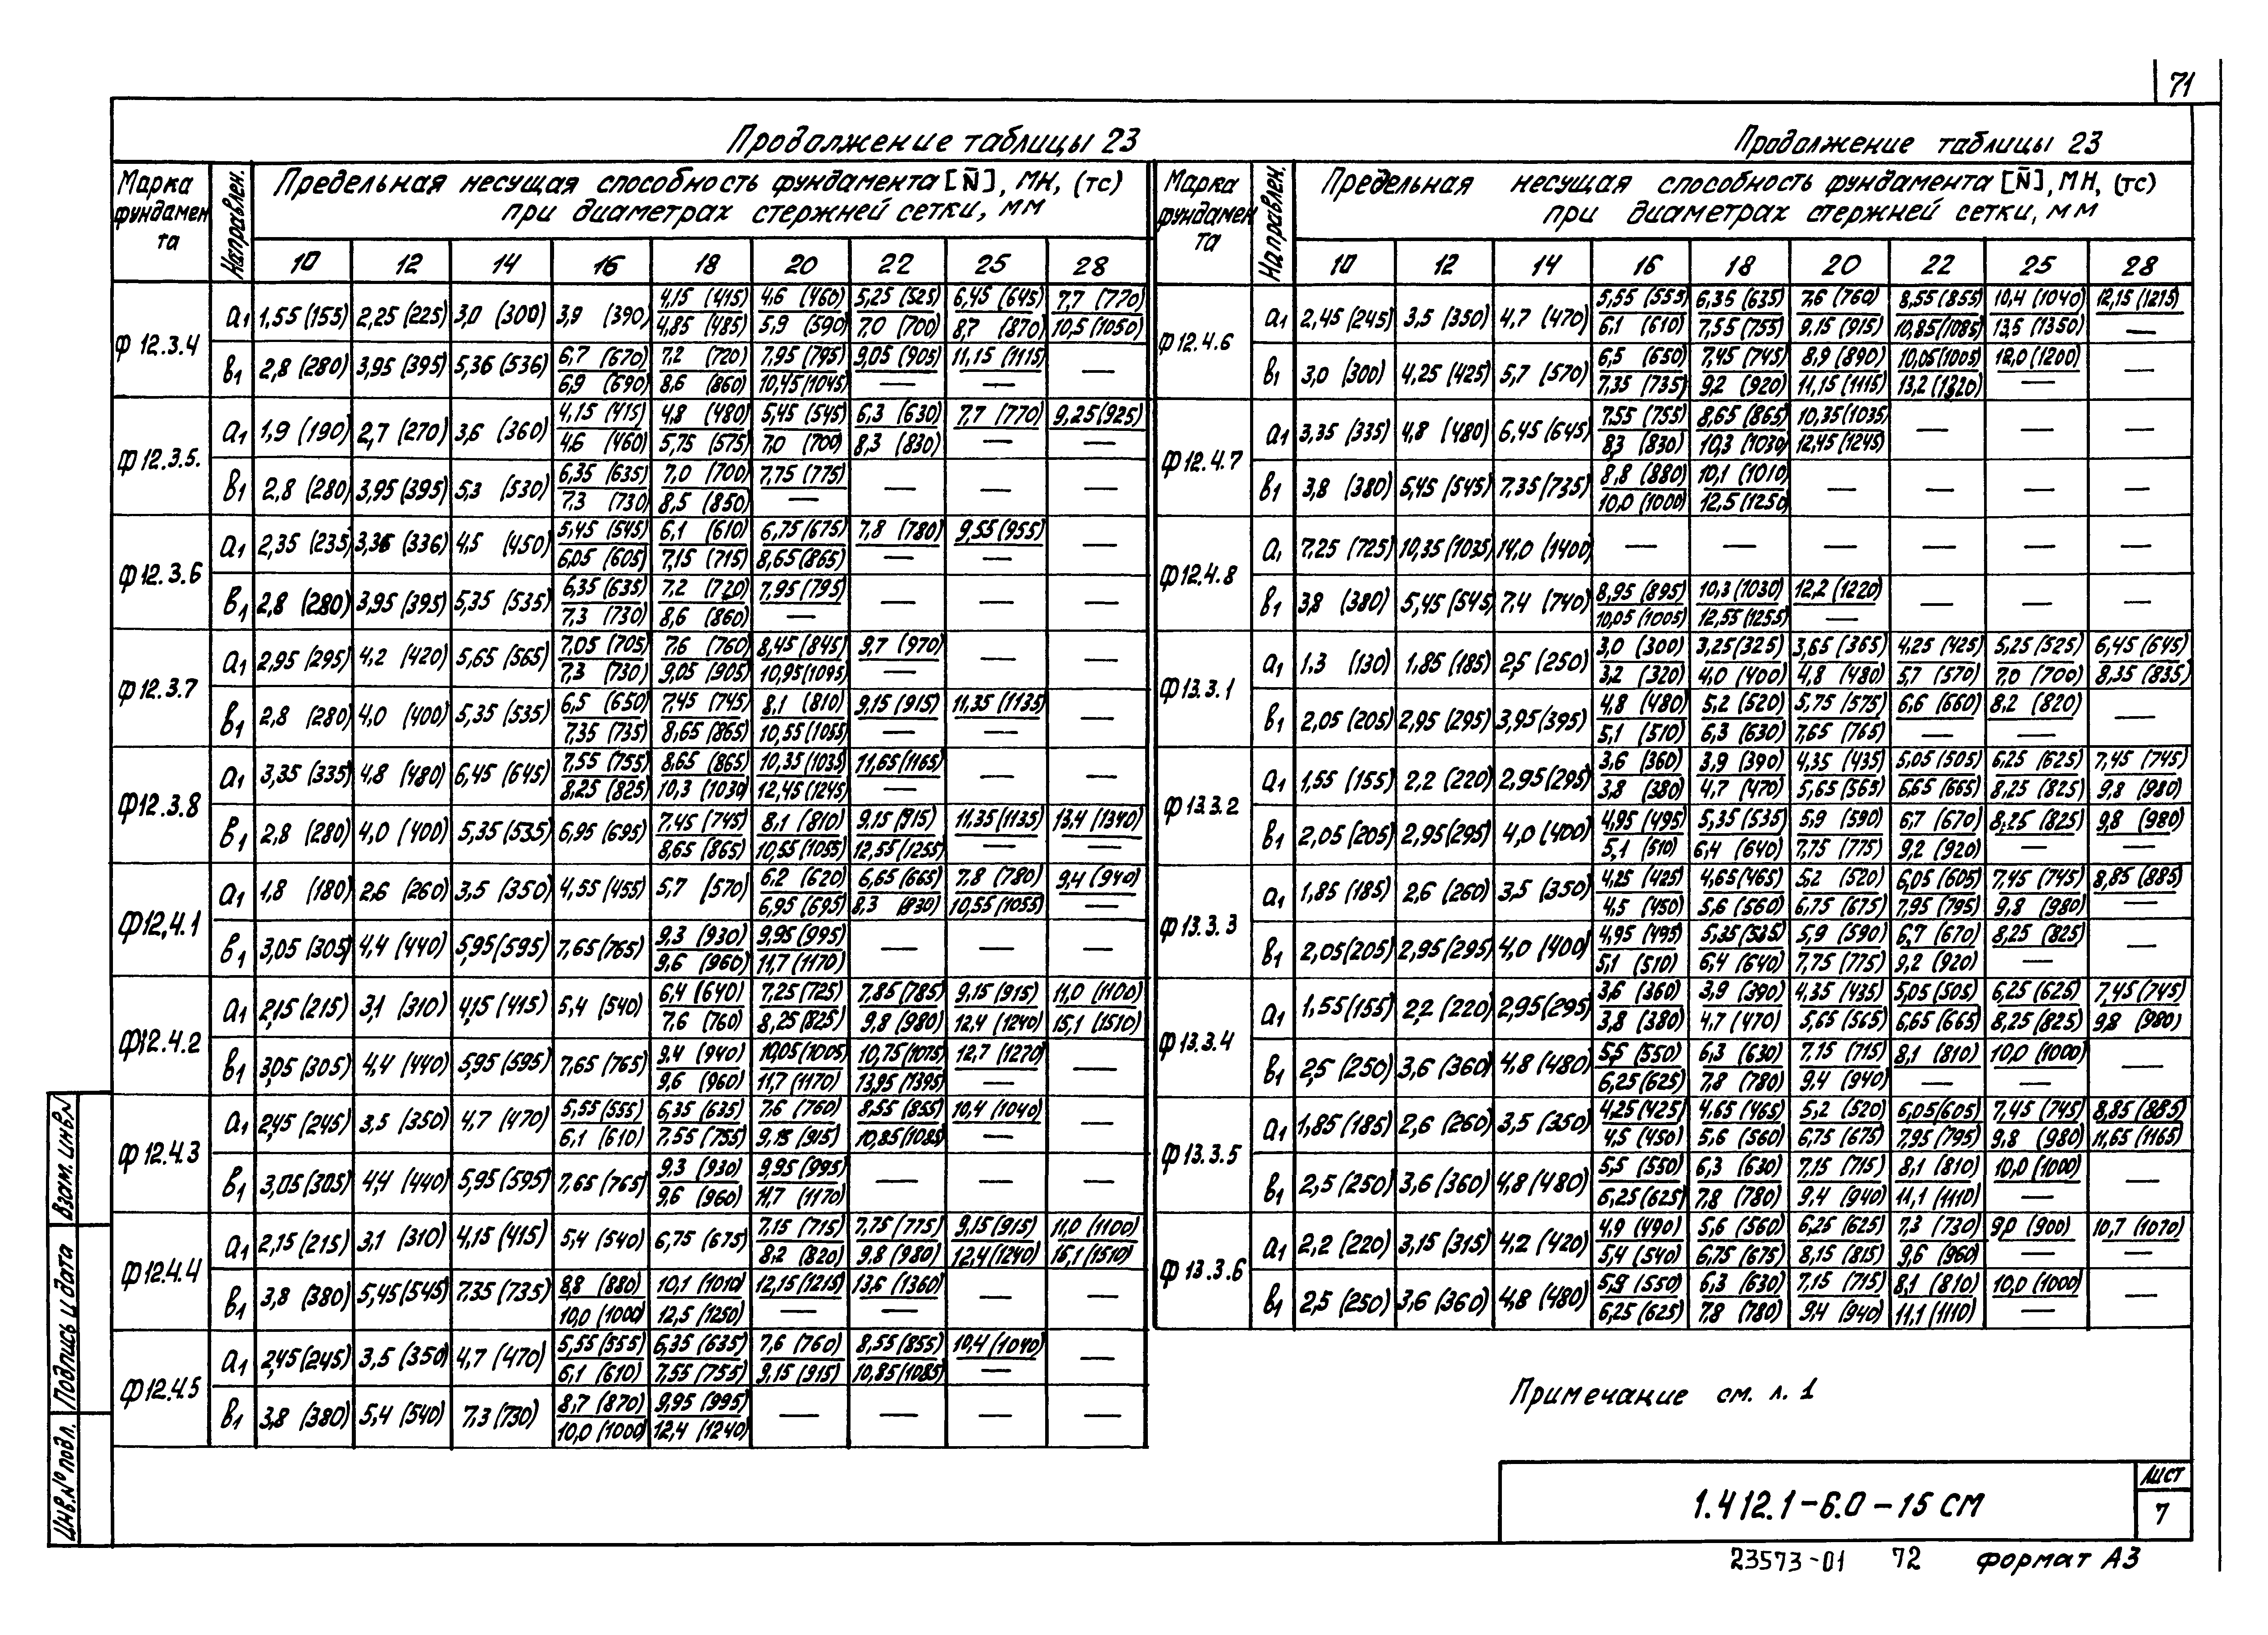 71
Продолжение таблицы 23
Марка фундамента | Направлен. | Предельная несущая способность фундамента [Ñ], МН, (тс) при диаметрах стержней сетки, мм
10 | 12 | 14 | 16 | 18 | 20 | 22 | 25 | 28
Ф 12.3.4
а1 | 1,55 (155) | 2,25 (225) | 3,0 (300) | 3,9 (390) | 4,15 (415) / 4,85 (485) | 4,6 (460) / 5,9 (590) | 5,25 (525) / 7,0 (700) | 6,45 (645) / 8,7 (870) | 7,7 (770) / 10,5 (1050)
в1 | 2,8 (280) | 3,95 (395) | 5,36 (536) | 6,7 (670) / 6,9 (690) | 7,2 (720) / 8,6 (860) | 7,95 (795) / 10,45 (1045) | 9,05 (905) / — | 11,15 (1115) / — | —
Ф 12.3.5.
а1 | 1,9 (190) | 2,7 (270) | 3,6 (360) | 4,15 (415) / 4,6 (460) | 4,8 (480) / 5,75 (575) | 5,45 (545) / 7,0 (700) | 6,3 (630) / 8,3 (830) | 7,7 (770) / — | 9,25 (925) / —
в1 | 2,8 (280) | 3,95 (395) | 5,3 (530) | 6,35 (635) / 7,3 (730) | 7,0 (700) / 8,5 (850) | 7,75 (775) / — | — | — | —
Ф 12.3.6
а1 | 2,35 (235) | 3,36 (336) | 4,5 (450) | 5,45 (545) / 6,05 (605) | 6,1 (610) / 7,15 (715) | 6,75 (675) / 8,65 (865) | 7,8 (780) / — | 9,55 (955) / — | —
в1 | 2,8 (280) | 3,95 (395) | 5,35 (535) | 6,35 (635) / 7,3 (730) | 7,2 (720) / 8,6 (860) | 7,95 (795) / — | — | — | —
Ф 12.3.7
а1 | 2,95 (295) | 4,2 (420) | 5,65 (565) | 7,05 (705) / 7,3 (730) | 7,6 (760) / 9,05 (905) | 8,45 (845) / 10,95 (1095) | 9,7 (970) / — | — | —
в1 | 2,8 (280) | 4,0 (400) | 5,35 (535) | 6,5 (650) / 7,35 (735) | 7,45 (745) / 8,65 (865) | 8,1 (810) / 10,55 (1055) | 9,15 (915) / — | 11,35 (1135) / — | —
Ф 12.3.8
а1 | 3,35 (335) | 4,8 (480) | 6,45 (645) | 7,55 (755) / 8,25 (825) | 8,65 (865) / 10,3 (1030) | 10,35 (1035) / 12,45 (1245) | 11,65 (1165) / — | — | —
в1 | 2,8 (280) | 4,0 (400) | 5,35 (535) | 6,95 (695) | 7,45 (745) / 8,65 (865) | 8,1 (810) / 10,55 (1055) | 9,15 (915) / 12,55 (1255) | 11,35 (1135) / — | 13,4 (1340) / —
Ф12,4.1
а1 | 1,8 (180) | 2,6 (260) | 3,5 (350) | 4,55 (455) | 5,7 (570) | 6,2 (620) / 6,95 (695) | 6,65 (665) / 8,3 (830) | 7,8 (780) / 10,55 (1055) | 9,4 (940) / —
в1 | 3,05 (305) | 4,4 (440) | 5,95 (595) | 7,65 (765) | 9,3 (930) / 9,6 (960) | 9,95 (995) / 11,7 (1170) | — | — | —
Ф12.4.2
а1 | 2,15 (215) | 3,1 (310) | 4,15 (415) | 5,4 (540) | 6,4 (640) / 7,6 (760) | 7,25 (725) / 8,25 (825) | 7,85 (785) / 9,8 (980) | 9,15 (915) / 12,4 (1240) | 11,0 (1100) / 15,1 (1510)
в1 | 3,05 (305) | 4,4 (440) | 5,95 (595) | 7,65 (765) | 9,4 (940) / 9,6 (960) | 10,05 (1005) / 11,7 (1170) | 10,75 (1075) / 13,95 (1395) | 12,7 (1270) / — | —
Ф 12.4.3
а1 | 2,45 (245) | 3,5 (350) | 4,7 (470) | 5,55 (555) / 6,1 (610) | 6,35 (635) / 7.55 (755) | 7,6 (760) / 9,15 (915) | 8,55 (855) / 10,85 (1085) | 10,4 (1040) / — | —
в1 | 3,05 (305) | 4,4 (440) | 5,95 (595) | 7,65 (765) | 9,3 (930) / 9,6 (960) | 9,95 (995) / 11,7 (1170) | — | — | —
Ф12.4.4
а1 | 2,15 (215) | 3,1 (310) | 4,15 (415) | 5,4 (540) | 6,75 (675) | 7,15 (715) / 8,2 (820) | 7,75 (775) / 9,8 (980) | 9,15 (915) / 12,4 (1240) | 11,0 (1100) / 15,1 (1510)
в1 | 3,8 (380) | 5,45 (545) | 7,35 (735) | 8,8 (880) / 10,0 (1000) | 10,1 (1010) / 12,5 (1250) | 12,15 (1215) / — | 13,6 (1360) / — | — | —
Ф12.4.5
а1 | 2,45 (245) | 3,5 (350) | 4,7 (470) | 5,55 (555) / 6,1 (610) | 6,35 (635) / 7,55 (755) | 7,6 (760) / 9,15 (915) | 8,55 (855) / 10,85 (1085) | 10,4 (1040) / — | —
в1 | 3,8 (380) | 5,4 (540) | 7,3 (730) | 8,7 (870) / 10,0 (1000) | 9,95 (995) / 12,4 (1240) | — | — | — | —
Продолжение таблицы 23
Марка фундамента | Направлен. | Предельная несущая способность фундамента [Ñ], МН, (тс) при диаметрах стержней сетки, мм
10 | 12 | 14 | 16 | 18 | 20 | 22 | 25 | 28
Ф12.4.6
а1 | 2,45 (245) | 3,5 (350) | 4,7 (470) | 5,55 (555) / 6,1 (610) | 6,35 (635) / 7,55 (755) | 7,6 (760) / 9,15 (915) | 8,55 (855) / 10,85 (1085) | 10,4 (1040) / 13,5 (1350) | 12,15 (1215) / —
в1 | 3,0 (300) | 4,25 (425) | 5,7 (570) | 6,5 (650) / 7,35 (735) | 7,45 (745) / 9,2 (920) | 8,9 (890) / 11,15 (1115) | 10,05 (1005) / 13,2 (1320) | 12,0 (1200) / — | —
Ф12.4.7
а1 | 3,35 (335) | 4,8 (480) | 6,45 (645) | 7,55 (755) / 8,3 (830) | 8,65 (865) / 10,3 (1030) | 10,35 (1035) / 12,45 (1245) | — | — | —
в1 | 3,8 (380) | 5,45 (545) | 7,35 (735) | 8,8 (880) / 10,0 (1000) | 10,1 (1010) / 12,5 (1250) | — | — | — | —
Ф12.4.8
а1 | 7,25 (725) | 10,35 (1035) | 14,0 (1400) | — | — | — | — | — | —
в1 | 3,8 (380) | 5,45 (545) | 7,4 (740) | 8,95 (895) / 10,05 (1005) | 10,3 (1030) / 12,55 (1255) | 12,2 (1220) / — | — | — | —
Ф13.3.1
а1 | 1.3 (130) | 1,85 (185) | 2,5 (250) | 3,0 (300) / 3,2 (320) | 3,25 (325) / 4,0 (400) | 3,65 (365) / 4,8 (480) | 4,25 (425) / 5,7 (570) | 5,25 (525) / 7,0 (700) | 6,45 (645) / 8,35 (835)
в1 | 2,05 (205) | 2,95 (295) | 3,95 (395) | 4,8 (480) / 5,1 (510) | 5,2 (520) / 6,3 (630) | 5,75 (575) / 7,65 (765) | 6,6 (660) / — | 8,2 (820) / — | —
Ф13.3.2
а1 | 1,55 (155) | 2,2 (220) | 2,95 (295) | 3,6 (360) / 3,8 (380) | 3,9 (390) / 4,7 (470) | 4,35 (435) / 5,65 (565) | 5,05 (505) / 6,65 (665) | 6,25 (625) / 8,25 (825) | 7,45 (745) / 9,8 (980)
в1 | 2,05 (205) | 2,95 (295) | 4,0 (400) | 4,95 (495) / 5,1 (510) | 5,35 (535) / 6,4 (640) | 5,9 (590) / 7,75 (775) | 6,7 (670) / 9,2 (920) | 8,25 (825) / — | 9,8 (980) / —
Ф13.3.3
а1 | 1,85 (185) | 2,6 (260) | 3,5 (350) | 4,25 (425) / 4,5 (450) | 4,65 (465) / 5,6 (560) | 5,2 (520) / 6,75 (675) | 6,05 (605) / 7,95 (795) | 7,45 (745) / 9,8 (980) | 8,85 (885) / —
в1 | 2,05 (205) | 2,95 (295) | 4,0 (400) | 4,95 (495) / 5,1 (510) | 5,35 (535) / 6,4 (640) | 5,9 (590) / 7,75 (775) | 6,7 (670) / 9,2 (920) | 8,25 (825) / — | —
Ф13.3.4
а1 | 1,55 (155) | 2,2 (220) | 2,95 (295) | 3,6 (360) / 3,8 (380) | 3,9 (390) / 4,7 (470) | 4,35 (435) / 5,65 (565) | 5,05 (505) / 6,65 (665) | 6,25 (625) / 8,25 (825) | 7,45 (745) / 9,8 (980)
в1 | 2,5 (250) | 3,6 (360) | 4,8 (480) | 5,5 (550) / 6,25 (625) | 6,3 (630) / 7,8 (780) | 7,15 (715) / 9,4 (940) | 8,1 (810) / — | 10,0 (1000) / — | —
Ф13.3.5
а1 | 1,85 (185) | 2,6 (260) | 3,5 (350) | 4,25 (425) / 4,5 (450) | 4,65 (465) / 5,6 (560) | 5,2 (520) / 6,75 (675) | 6,05 (605) / 7,95 (795) | 7,45 (745) / 9,8 (980) | 8,85 (885) / 11,65 (1165)
в1 | 2,5 (250) | 3,6 (360) | 4,8 (480) | 5,5 (550) / 6,25 (625) | 6,3 (630) / 7,8 (780) | 7,15 (715) / 9,4 (940) | 8,1 (810) / 11,1 (1110) | 10,0 (1000) / — | —
Ф 13.3.6
а1 | 2,2 (220) | 3,15 (315) | 4,2 (420) | 4,9 (490) / 5,4 (540) | 5,6 (560) / 6,75 (675) | 6,25 (625) / 8,15 (815) | 7,3 (730) / 9,6 (960) | 9,0 (900) / — | 10,7 (1070) / —
в1 | 2,5 (250) | 3,6 (360) | 4,8 (480) | 5,9 (550) / 6,25 (625) | 6,3 (630) / 7,8 (780) | 7,15 (715) / 9,4 (940) | 8,1 (810) / 11,1 (1110) | 10,0 (1000) / — | —
Примечание см. л. 1
1.412.1-6.0-15 СМ
Лист
7
23573-01 72 формат А3
Взам. инв.№
Подпись и дата
Инв.№ подл.